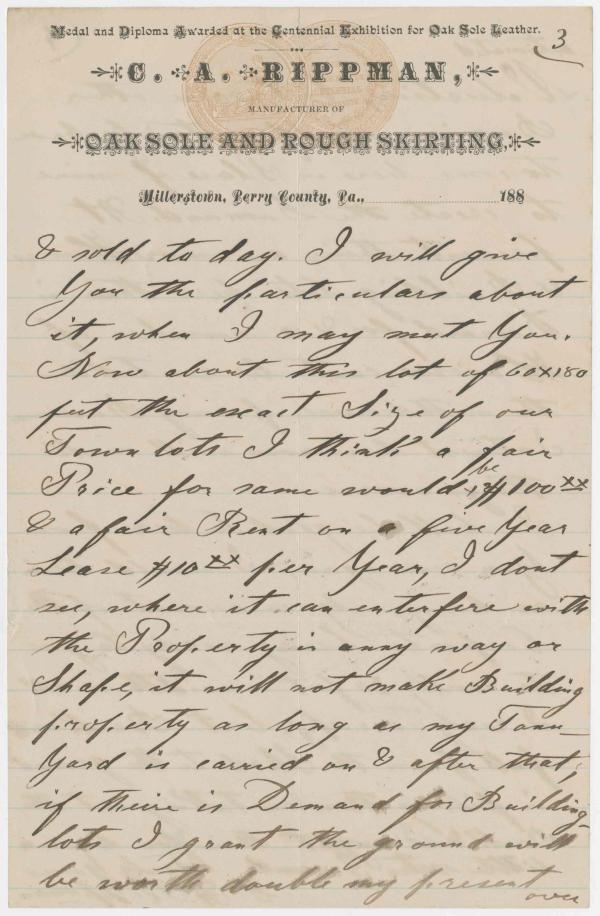 Medal and Diploma Awarded at the Centennial Exhibition for Oak Sole Leather.
3
C. A. RIPPMAN,
MANUFACTURER OF
OAK SOLE AND ROUGH SKIRTING,
Millerstown, Perry County, Pa., 188
& sold to day. I will give
You the particulars about
it, when I may meet You.
Now about this lot of 60x180
feet the exact Size of our
Town lots I think a fair
Price for same would be $100 xx
& a fair Rent on a five Year
Lease $10 xx per Year, I dont
see, where it can enterfere with
the Property in anny way or
Shape, it will not make Building
property as long as my Tann-
Yard is carried on & after that,
if theire is Demand for Building-
lots I grant the ground will
be worth double my present
over